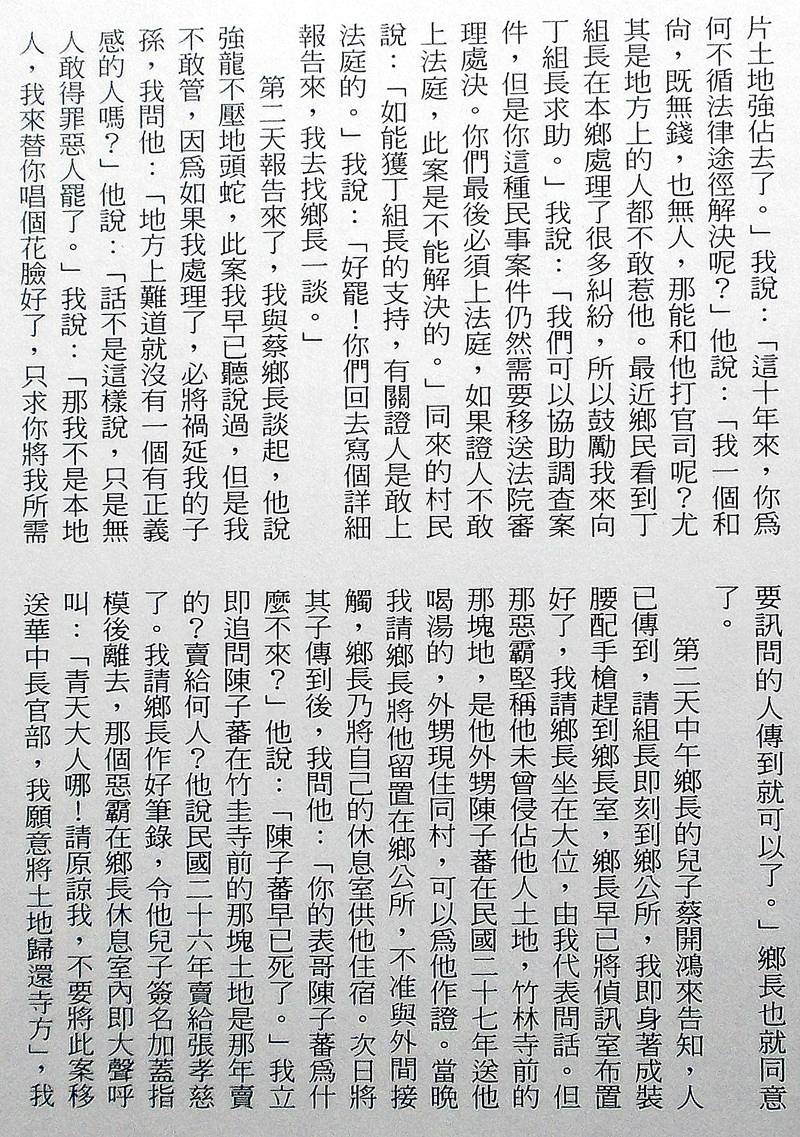 片土地強佔去了。」我說：「這十年來，你爲
何不循法律途徑解決呢？」他說：「我一個和
尙，既無錢，也無人，那能和他打官司呢？尤
其是地方上的人都不敢惹他。最近鄉民看到丁
組長在本鄉處理了很多糾紛，所以鼓勵我來向
丁組長求助。」我說：「我們可以協助調查案
件，但是你這種民事案件仍然需要移送法院審
理處決。你們最後必須上法庭，如果證人不敢
上法庭，此案是不能解決的。」同來的村民
說：「如能獲丁組長的支持，有關證人是敢上
法庭的。」我說：「好罷！你們回去寫個詳細
報告來，我去找鄉長一談。」
第二天報告來了，我與蔡鄉長談起，他說
強龍不壓地頭蛇，此案我早已聽說過，但是我
不敢管，因爲如果我處理了，必將禍延我的子
孫，我問他：「地方上難道就沒有一個有正義
感的人嗎？」他說：「話不是這樣說，只是無
人敢得罪惡人罷了。」我說：「那我不是本地
人，我來替你唱個花臉好了，只求你將我所需
要訊問的人傳到就可以了。」鄉長也就同意
了。
第二天中午鄉長的兒子蔡開鴻來告知，人
已傳到，請組長即刻到鄉公所，我即身著戎裝
腰配手槍趕到鄉長室，鄉長早已將偵訊室布置
好了，我請鄉長坐在大位，由我代表問話。但
那惡霸堅稱他未曾侵佔他人土地，竹林寺前的
那塊地，是他外甥陳子蕃在民國二十七年送他
喝湯的，外甥現住同村，可以爲他作證。當晚
我請鄉長將他留置在鄉公所，不准與外間接
觸，鄉長乃將自己的休息室供他住宿。次日將
其子傳到後，我問他：「你的表哥陳子蕃爲什
麼不來？」他說：「陳子蕃早已死了。」我立
即追問陳子蕃在竹圭寺前的那塊土地是那年賣
的？賣給何人？他說民國二十六年賣給張孝慈
了。我請鄉長作好筆錄，令他兒子簽名加蓋指
模後離去，那個惡霸在鄉長休息室內即大聲呼
叫：「青天大人哪！請原諒我，不要將此案移
送華中長官部，我願意將土地歸還寺方」，我